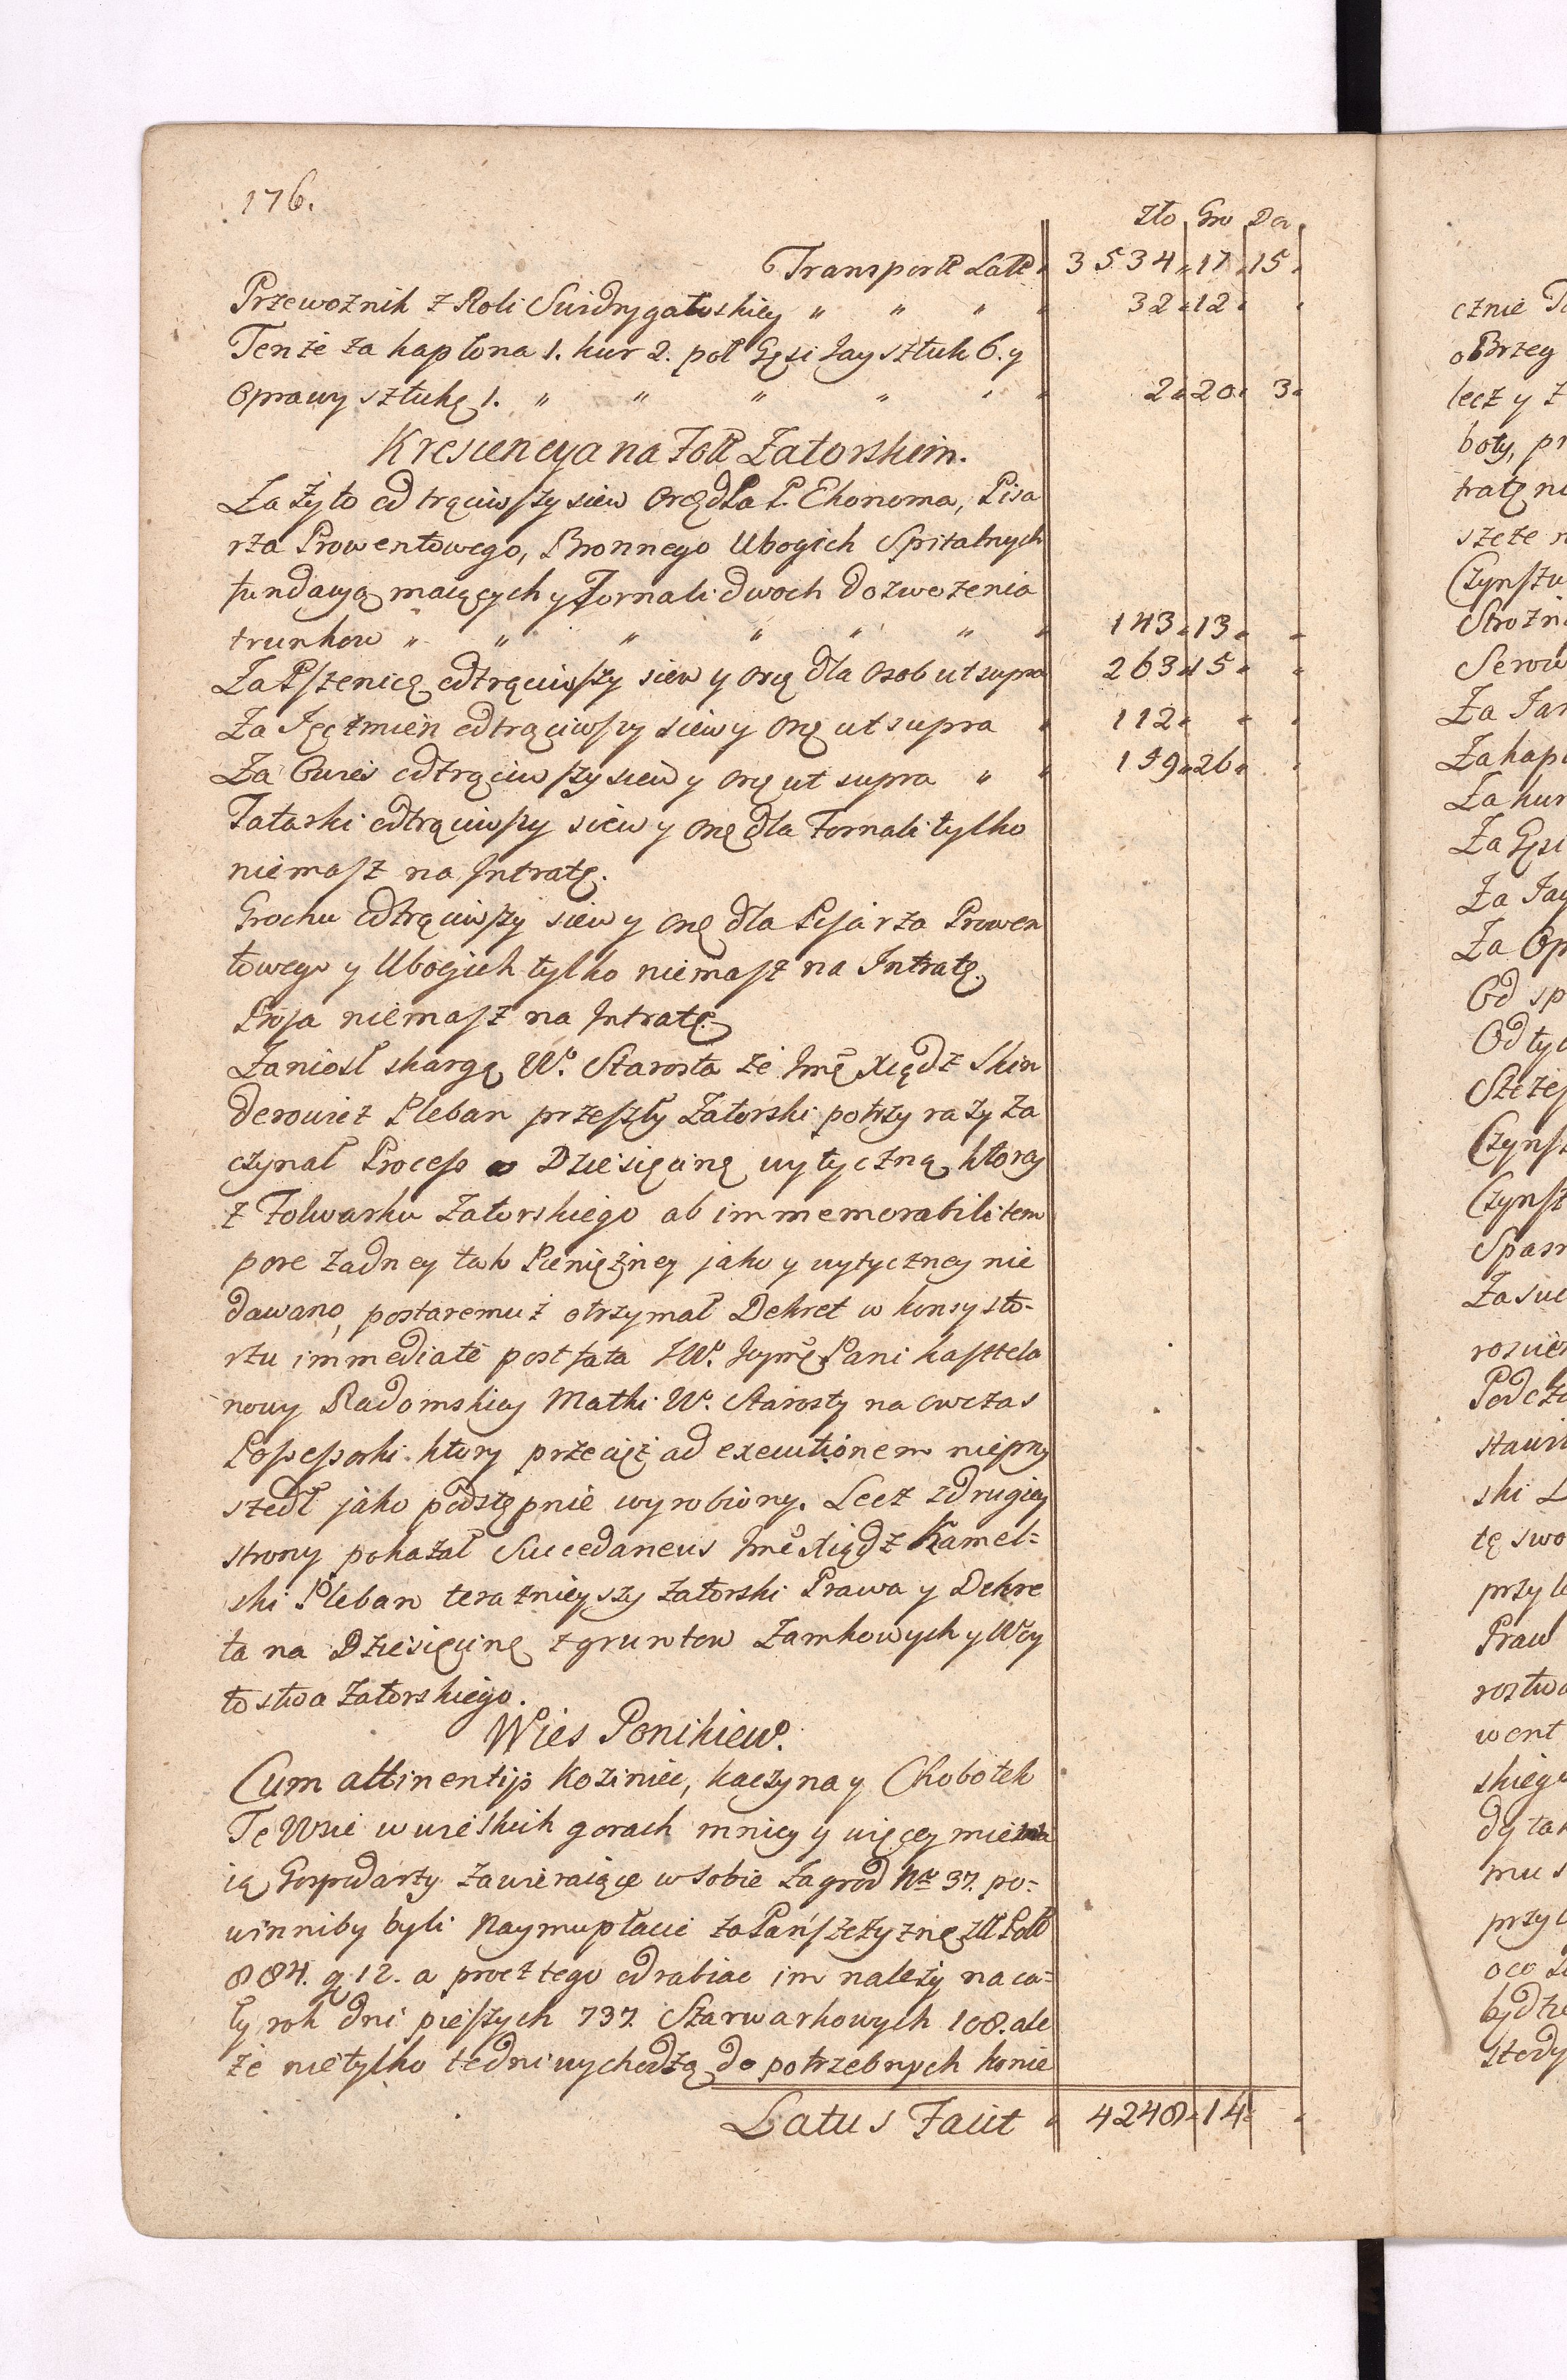 176.
Zło Gro De
Transportt Latt 3534 17 15
Przewoznik z Roli Swidrygałoskiey " " " 32 12
Tenze za kapłona 1. kur 2. poł Gęsi Jay sztuk 6. y
Oprawy sztukę 1. " " " " 2 20 3
Krescencya na Folw Zatorskim.
Za Żyto odtrąciwszy siew Orę dla P. Ekonoma, Pisa
rza Prowentowego, Bronnego Ubogich Spitalnych
fundacyą maiących y Fornali dwoch do zwozenia
trunkow " " " " " " 143 13
Za Pszenicę odtrąciwszy siew y Orę dla Osob ut supra 263 15
Za Jęczmien odtrąciwszy siew y Orę ut supra 112
Za Owies odtrąciwszy siew y Orę ut supra " 159 26
Tatarki odtrąciwszy siew y Orę dla Fornali tylko
niemasz na Intratę.
Grochu odtrąciwszy siew y Orę dla Pisarza Prowen
towego y Ubogich tylko niemasz na Intratę.
Prosa niemasz na Intratę.
Zaniosł skargę W. Starosta że Jmę Xiądz Skin
derowicz Pleban przeszły Zatorski po trzy razy za
czynał Process o Dziesięcinę wytyczną ktorey
z Folwarku Zatorskiego ab immemorabili tem
pore zadney tak Pieniężney jako y wytyczney nie
dawano, postaremu ż otrzymał Dekret w konsysto-
rzu immediate post fata JW. Jeymę Pani Kasztela
nowy Radomskiey Matki W. Starosty na owczas
Possessorki. ktory przecięż ad executionem nieprzy
szedł jako podstępnie wyrobiony. Lecz z drugiey
strony pokazał Succedaneus Jmę Xiądz Kamel=
ski Pleban teraznieyszy Zatorski Prawa y Dekre
ta na Dziesięcinę z gruntow Zamkowych y Woy
tostwa Zatorskiego.
Wies Ponikiew.
Cum attinentijs Koziniec, Kaczyna y Chobotek
Te Wsie w wielkich gorach mniey y więcey
ią Gospodarzy zawieraiące w sobie Zagrod Nro 37. po=
winniby byli Naymu płacic za Pańszczyznę
884. g 12. a procz tego odrabiac im należy na ca=
ły rok dni pieszych 737. Szarwarkowych 108. ale
że nietylko te dni wychodzą do potrzebnych konie
Latus Facit 4248 14